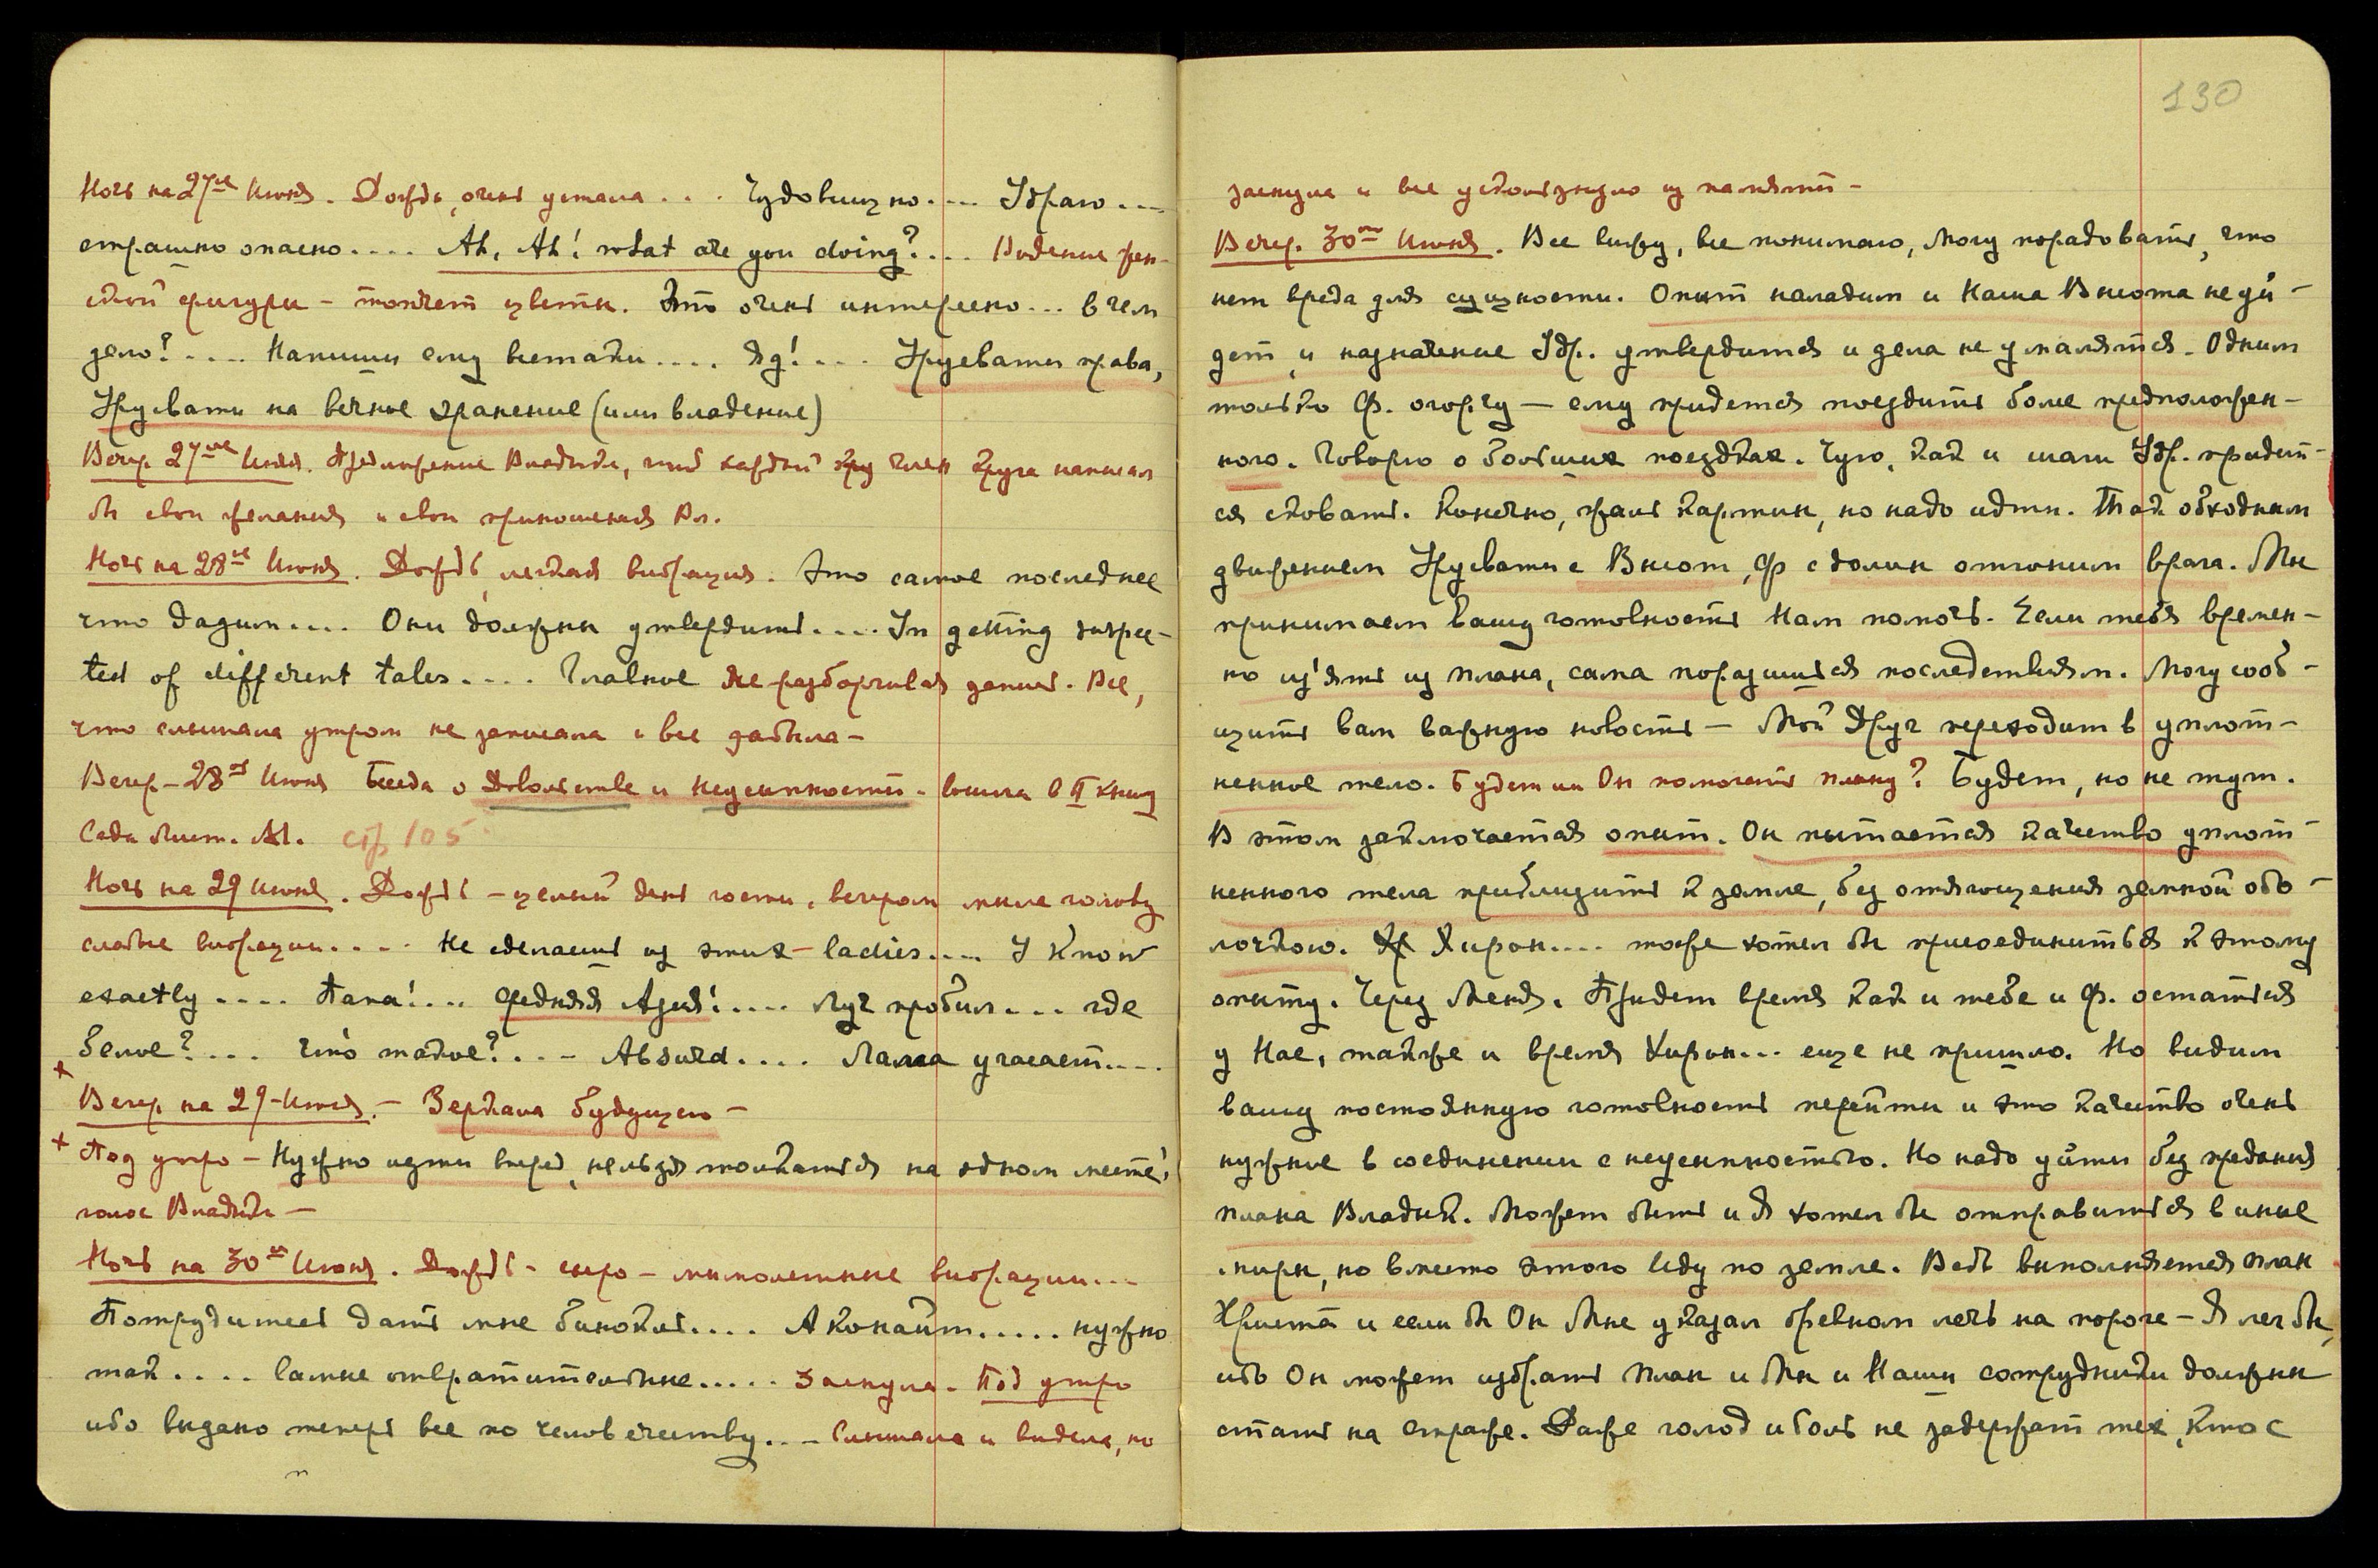 Ночь на 27ое Июня. Дождь, очень устала . . . Чудовищно.... Удраю....
страшно опасно.... Ah, Ah! what are you doing?.... Видение жен-
ской фигуры – топчет цветы. Это очень интересно... в чем
дело?.... Напиши ему всетаки.... Яд!.... Урусвати права,
Урусвати на вечное хранение (или владение)
Вечер. 27ое Июня. Предложение Владыки, чтоб каждый член Круга написал
бы свои желания и свои приношения Вл.
Ночь на 28ое Июня. Дождь, легкая вибрация. Это самое последнее
что дадим.... Они должны утвердить.... In getting
ted of different tales.... Главное Не разборчивая запись. Все,
что слышала утром не записала и все забыла –
Вечер – 28ое Июня Беседа о Довольстве и Неуспинности. вошла в II книгу
Сада Лист. М. стр 105
Ночь на 29 Июня. Дождь – целый день гости, вечером мыла голову
слабые вибрации.... Не сделаешь из этих – ladies.... I know
exactly.... Папа!... Средняя Азия!.... Луч пробил.... где
белое?.... что такое?... – Absurd.... Лампа угасает....
Вечер на 29–Июня. – Зеркала будущего –
Под утро – Нужно идти вперед, нельзя толкаться на одном месте!
голос Владыки –
Ночь на 30ое Июня. Дождь – сыро – мимолетные вибрации...
Потрудитесь дать мне бинокль.... Аконайт..... нужно
так.... самые отвратительные..... Заснула. Под утро
ибо видано теперь все по человечеству... – Слышала и видела, но
130
заснула и все ускользнуло из памяти –
Вечер. 30ое Июня. Все вижу, все понимаю, могу порадовать, что
нет вреда для сущности. Опыт наладим и Наша Высота не уй –
дет, и назначение Удр. утвердится и дела не умалятся. Одним
только Ф. огорчу – ему придется поездить более предположен –
ного. Говорю о больших поездках. Чую, как и шаги Удр. придет –
ся сковать. Конечно, жаль картин, но надо идти. Так обходным
движением Урусвати с Высот, Ф с долин отгоним врага. Мы
принимаем вашу готовность Нам помочь. Если тебя времен –
но изъять из плана, сама поразишься последствиям. Могу сооб –
щить вам важную новость – Мой Друг переходит в уплот –
ненное тело. Будет ли Он помогать плану? Будет, но не тут.
В этом заключается опыт. Он пытается качество уплот –
ненного тела приблизить к земле, без отягощения земной обо –
лочкою. Хирон.... тоже хотел бы присоединиться к этому
опыту. Через Меня. Придет время как и тебе и Ф. остаться
у Нас, также и время Хирон... еще не пришло. Но видим
вашу постоянную готовность перейти и это качество очень
нужное в соединении с неуспинностью. Но надо уйти без предания
плана Владык. Может быть и Я хотел бы отправиться в иные
миры, но вместо этого Иду по земле. Ведь выполняется план
Христа и если бы Он Мне указал бревном лечь на пороге – Я лег бы,
ибо Он может избрать план и Мы и Наши сотрудники должны
стать на страже. Даже голод и боль не задержат тех, кто с